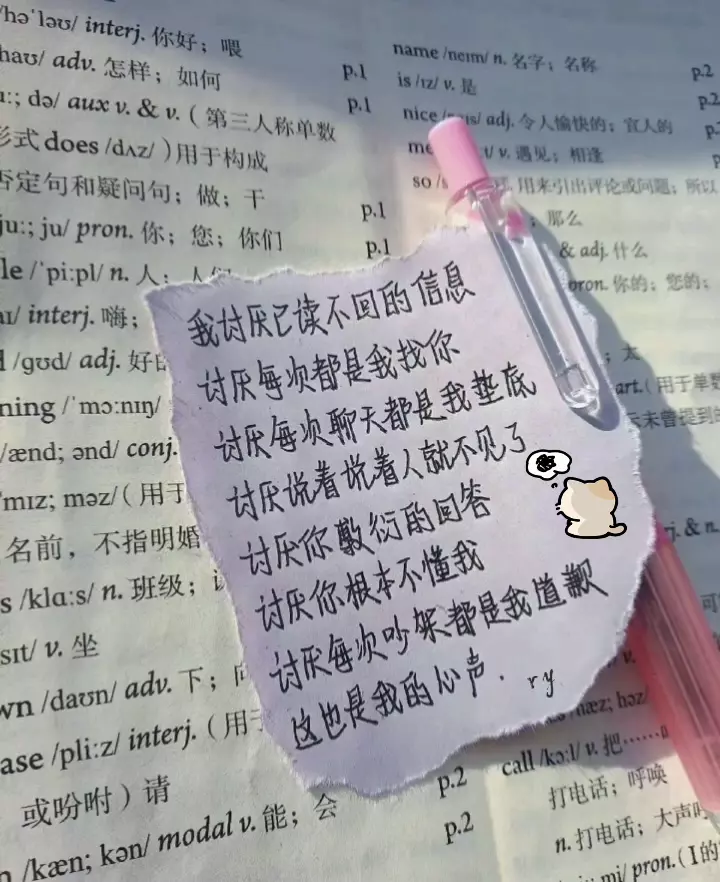 /həˈləʊ/ interj. 你好；喂
p.1
haʊ/ adv. 怎样；如何
p.1
uː; də/ aux v. & v.（第三人称单数
形式does /dʌz/）用于构成
否定句和疑问句；做；干
p.1
juː; ju/ pron. 你；您；你们
p.1
le /ˈpiːpl/ n. 人；人们
aɪ/ interj. 嗨；
/gʊd/ adj. 好的
ning /ˈmɔːnɪŋ/
/ænd; ənd/ conj.
mɪz; məz/（用于
名前，不指明婚
s /klɑːs/ n. 班级；
sɪt/ v. 坐
wn /daʊn/ adv. 下；向
ase /pliːz/ interj.（用于
或吩咐）请
p.2
n /kæn; kən/ modal v. 能；会
p.2
name /neɪm/ n. 名字；名称
p.2
is /ɪz/ v. 是
p.2
nice /naɪs/ adj. 令人愉快的；宜人的
p.2
v. 遇见；相逢
so 用来引出评论或问题；所以
那么
& adj. 什么
pron. 你的；您的；
太
art.（用于单数
未曾提到
我讨厌已读不回的信息
讨厌每次都是我找你
讨厌每次聊天都是我垫底
讨厌说着说着人就不见了
讨厌你敷衍的回答
讨厌你根本不懂我
讨厌每次吵架都是我道歉
这也是我的心声. ry
j. & n.
v.
hæz; həz/
call /kɔːl/ v. 把……
打电话；呼唤
n. 打电话；大声
mi/ pron.（I的